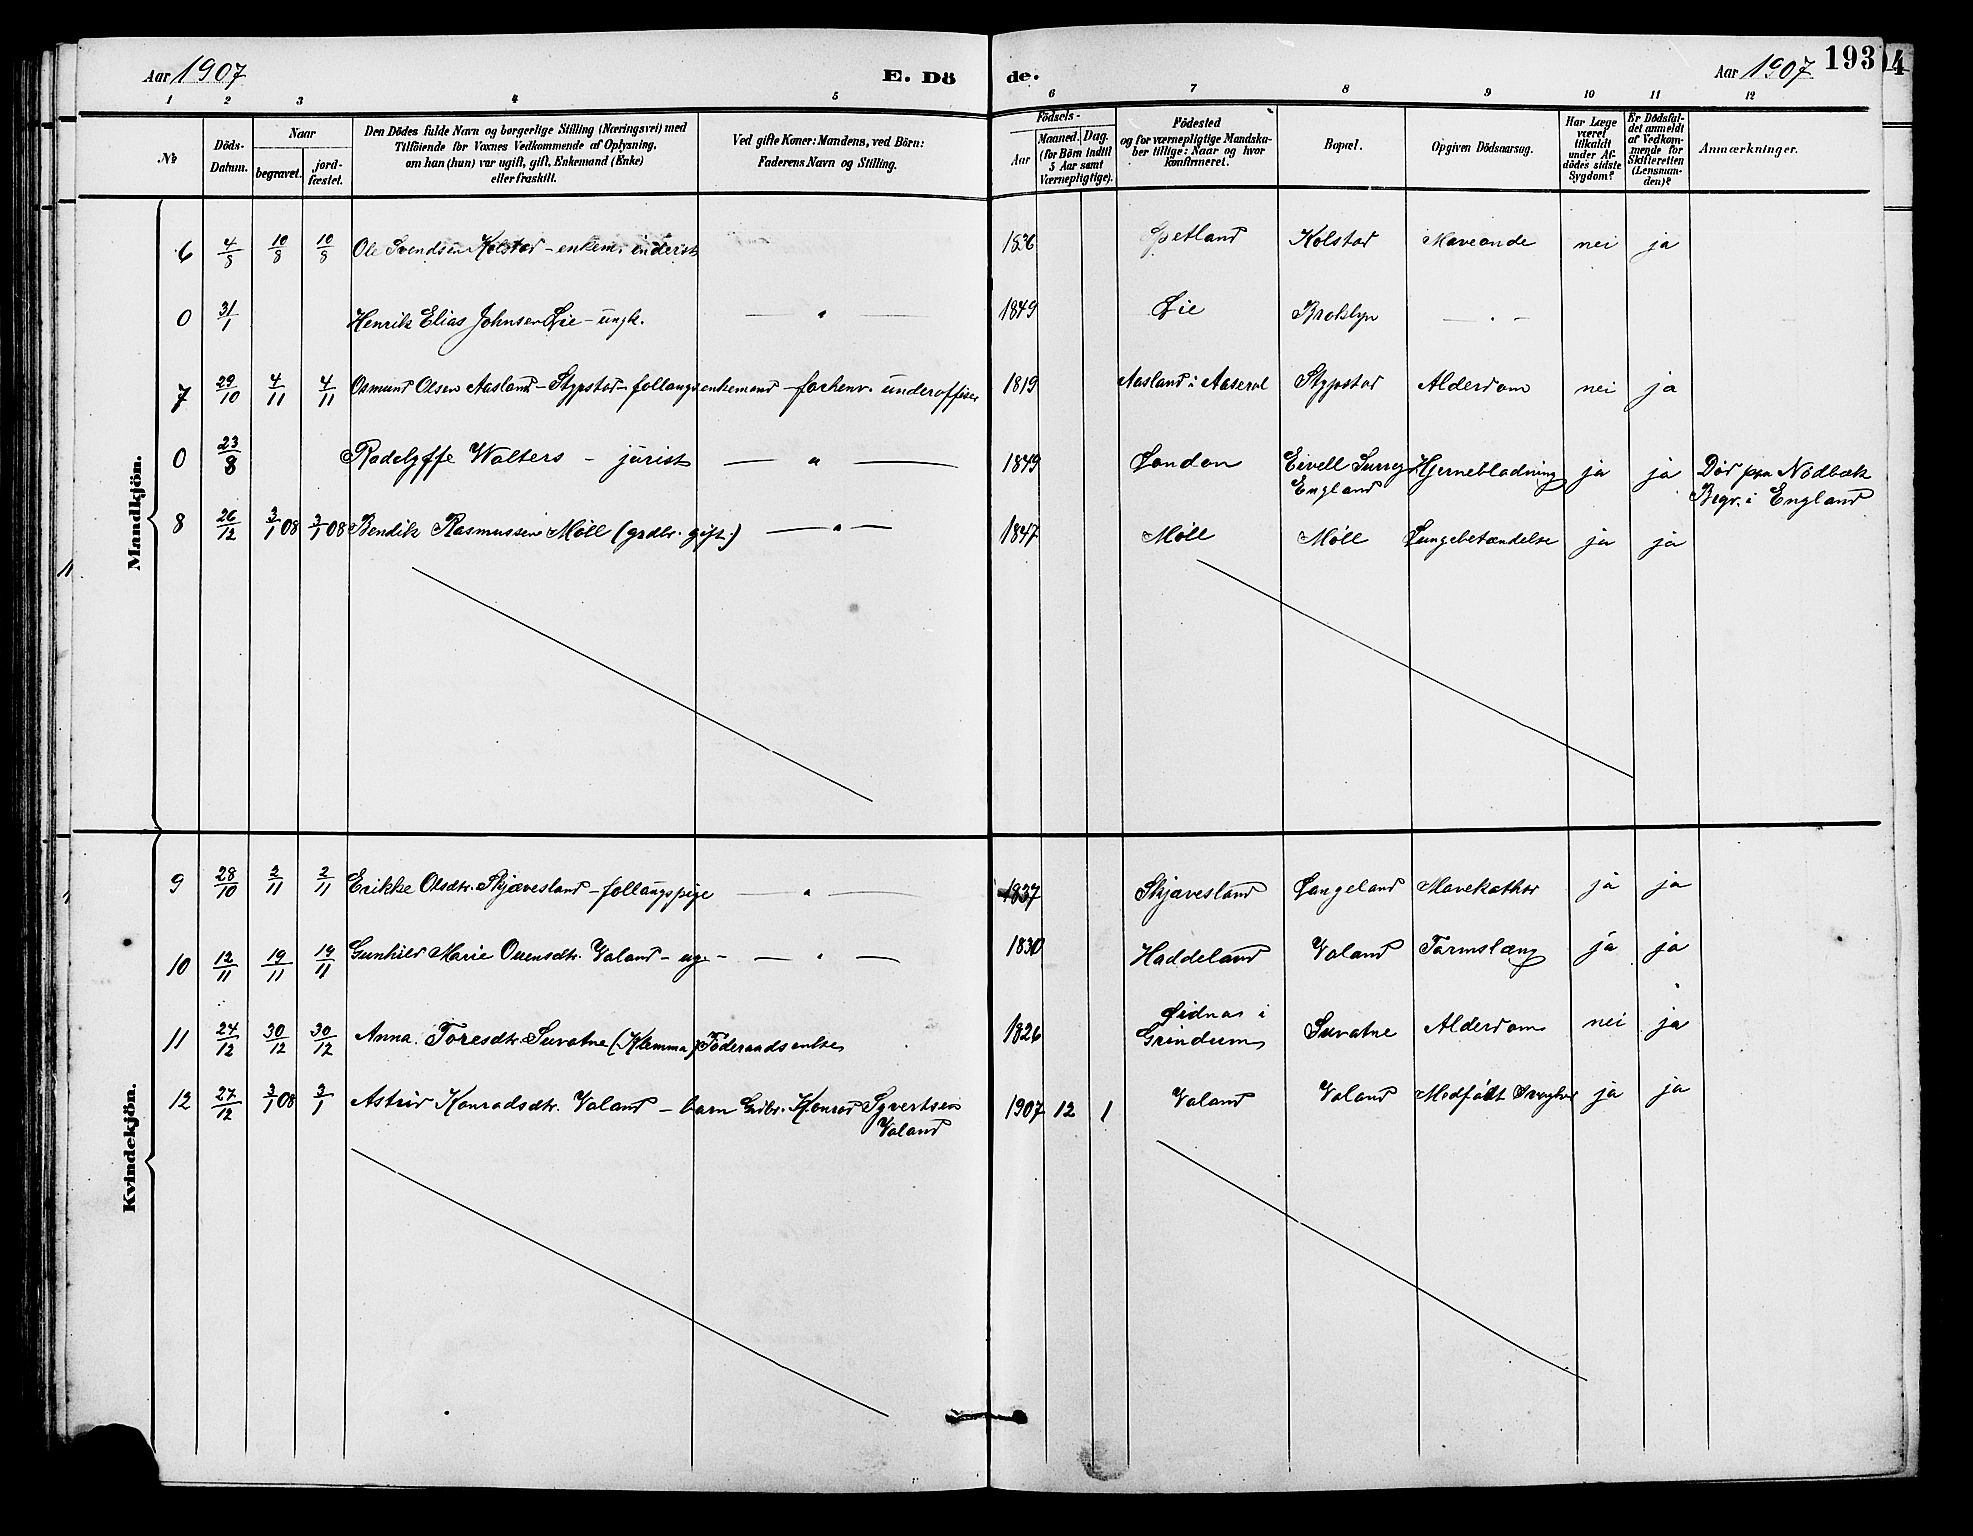 Aar 1907 E. Dö de. Aar 1907 193
4
1 2 3 4 5 6 7 8 9 10 11 12
No
Döds-Datum.
Naar
begravet.
jord-fæstet.
Den Dödes fulde Navn og borgerlige Stilling (Næringsvei) med
Tilföiende for Voxnes Vedkommende af Oplysning,
om han (hun) var ugift, gift, Enkemand (Enke)
eller fraskilt.
Ved gifte Koner: Mandens, ved Börn:
Faderens Navn og Stilling.
Födsels-
Aar
Maaned. Dag.
(for Börn indtil
5 Aar samt
Værnepligtige).
Födested
og for værnepligtige Mandska-
ber tillige: Naar og hvor
konfirmeret.
Bopæl.
Opgiven Dödsaarsag.
Har Læge
været
tilkaldt
under Af-
dödes sidste
Sygdom?
Er Dödsfal-
det anmeldt
af Vedkom-
mende for
Skifteretten
(Lensman-
den)?
Anmærkninger.
Mandkjön.
6 4/8 10/8 10/8 Ole Svendsen Kolstad - enkem. inderst 1836 Spetland Kolstad Maveonde nei ja
0 31/1 Henrik Elias Johnsen Øie - ungk. — " — 1849 Øie Broklyn — " —
7 29/10 4/11 4/11 Osmund Olsen Aasland - Stypstad - follaugs enkemand - forhenv. underoffiser 1819 Aasland i Aaseral Stypstad Alderdom nei ja
0 23/8 Radclyffe Walters - jurist — " — 1849 London Eivell Surrey Hjernebladning ja ja Død paa Nödbæk
England Begr. i England
8 26/12 3/1 08 3/1 08 Bendik Rasmussen Møll (grdbr. gift.) — " — 1847 Møll Møll Lungebetændelse ja ja
Kvindekjön.
9 28/10 2/11 2/11 Erikke Olsdtr. Skjævesland - follaugspige — " — 1837 Skjævesland Langeland Mavekathar ja ja
10 12/11 19/11 19/11 Gunhild Marie Ouensdtr. Valand - ug. - — " — 1830 Haddeland Valand Tarmslæng ja ja
11 24/12 30/12 30/12 Anna Toresdtr. Suvatne (Klemma) Föderaadsenke 1826 Lidnas i
Grindum Suvatne Alderdom nei ja
12 27/12 3/1 08 3/1 Astrid Konradsdtr. Valand - barn Grbr. Konrad Syvertsen
Valand 1907 12 1 Valand Valand Medfødt Svaghed ja ja